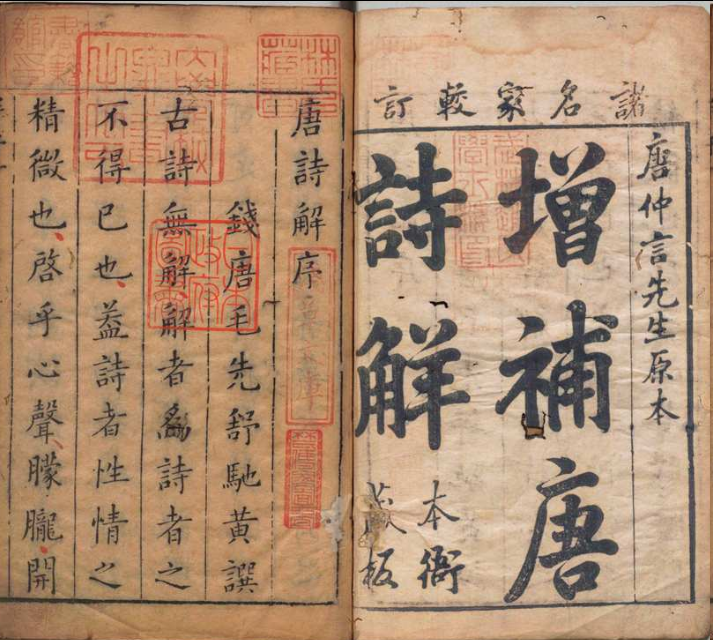 諸名家較訂
唐仲言先生原本
增補唐
詩解
本衙
藏板
唐詩解序
錢唐毛先舒馳黃譔
古詩無解解者為詩者之
不得已也葢詩者性情之
精微也啓乎心聲矇矓開